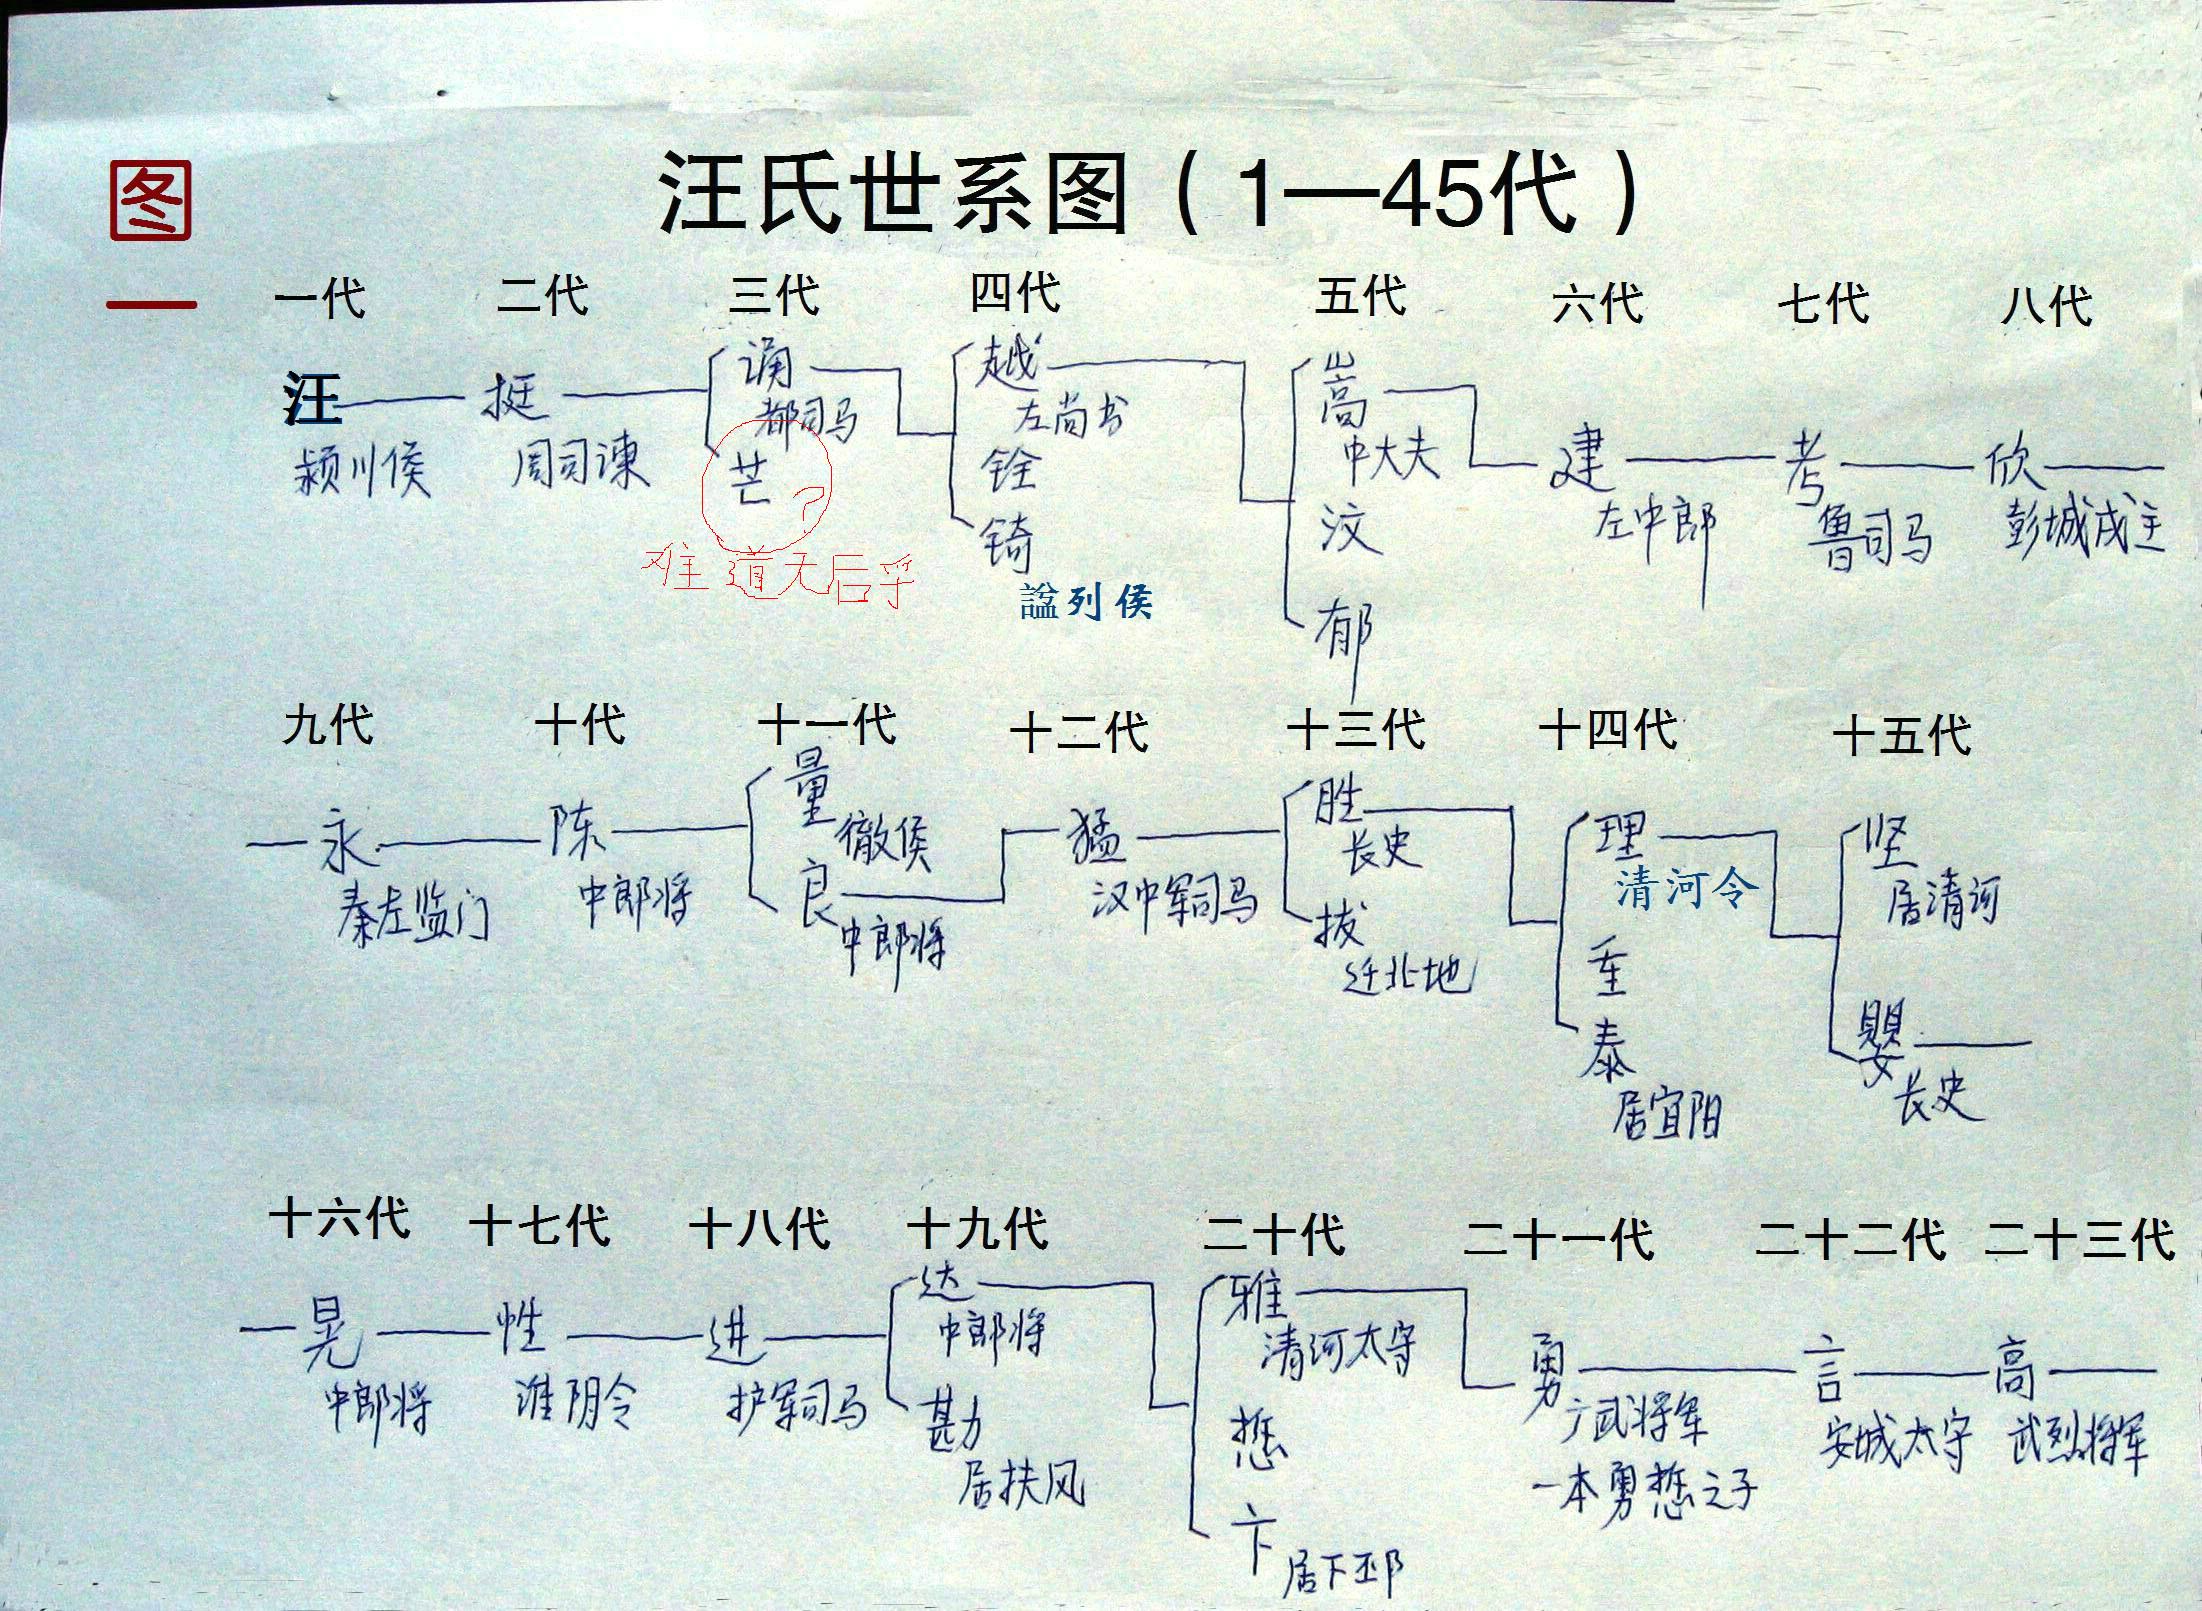 图一
汪氏世系图（1—45代）
一代 二代 三代 四代 五代 六代 七代 八代
汪 颍川侯
挺 周司谏
诵 都司马
芒 ?
难道无后乎
越 左尚书
铨
锜
謚列侯
嵩 中大夫
汶
郁
建 左中郎
考 鲁司马
欣 彭城戍主
九代 十代 十一代 十二代 十三代 十四代 十五代
永 秦左监门
陈 中郎将
量 徹侯
良 中郎将
猛 汉中军司马
胜 长史
拔 迁北地
理 清河令
重
泰 居宜阳
坚 居清河
婴 长史
十六代 十七代 十八代 十九代 二十代 二十一代 二十二代 二十三代
晃 中郎将
性 淮阴令
进 护军司马
达 中郎将
勘 居扶风
雅 清河太守
悊
卞 居下邳
勇 广武将军
一本勇悊之子
言 安城太守
高 武烈将军